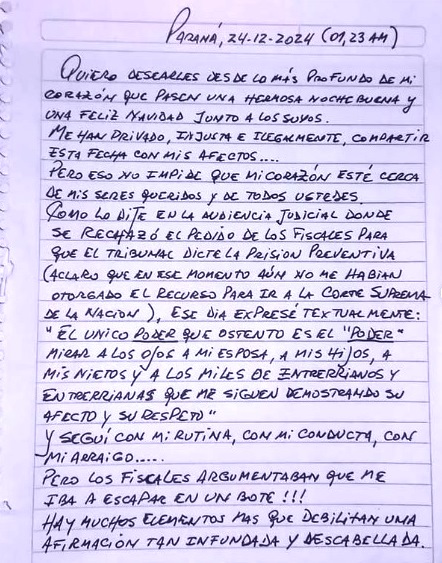 PARANÁ, 24-12-2024 (01,23 AM)
QUIERO DESEARLES DESDE LO MÁS PROFUNDO DE MI
CORAZÓN QUE PASEN UNA HERMOSA NOCHEBUENA y
UNA FELIZ NAVIDAD JUNTO A LOS SUYOS.
ME HAN PRIVADO, INJUSTA E ILEGALMENTE, COMPARTIR
ESTA FECHA CON MIS AFECTOS....
PERO ESO NO IMPIDE QUE MI CORAZÓN ESTÉ CERCA
DE MIS SERES QUERIDOS y DE TODOS USTEDES.
COMO LO DIJE EN LA AUDIENCIA JUDICIAL DONDE
SE RECHAZÓ EL PEDIDO DE LOS FISCALES PARA
QUE EL TRIBUNAL DICTE LA PRISION PREVENTIVA
(ACLARO QUE EN ESE MOMENTO AÚN NO ME HABIAN
OTORGADO EL RECURSO PARA IR A LA CORTE SUPREMA
DE LA NACION), ESE DIA EXPRESÉ TEXTUALMENTE:
"EL UNICO PODER QUE OSTENTO ES EL "PODER"
MIRAR A LOS OJOS A MI ESPOSA, A MIS HIJOS, A
MIS NIETOS y A LOS MILES DE ENTRERRIANOS y
ENTRERRIANAS QUE ME SIGUEN DEMOSTRANDO SU
AFECTO y SU RESPETO"
y SEGUÍ CON MI RUTINA, CON MI CONDUCTA, CON
MI ARRAIGO.....
PERO LOS FISCALES ARGUMENTABAN QUE ME
IBA A ESCAPAR EN UN BOTE!!!
HAY MUCHOS ELEMENTOS MAS QUE DEBILITAN UNA
AFIRMACIÓN TAN INFUNDADA y DESCABELLADA.